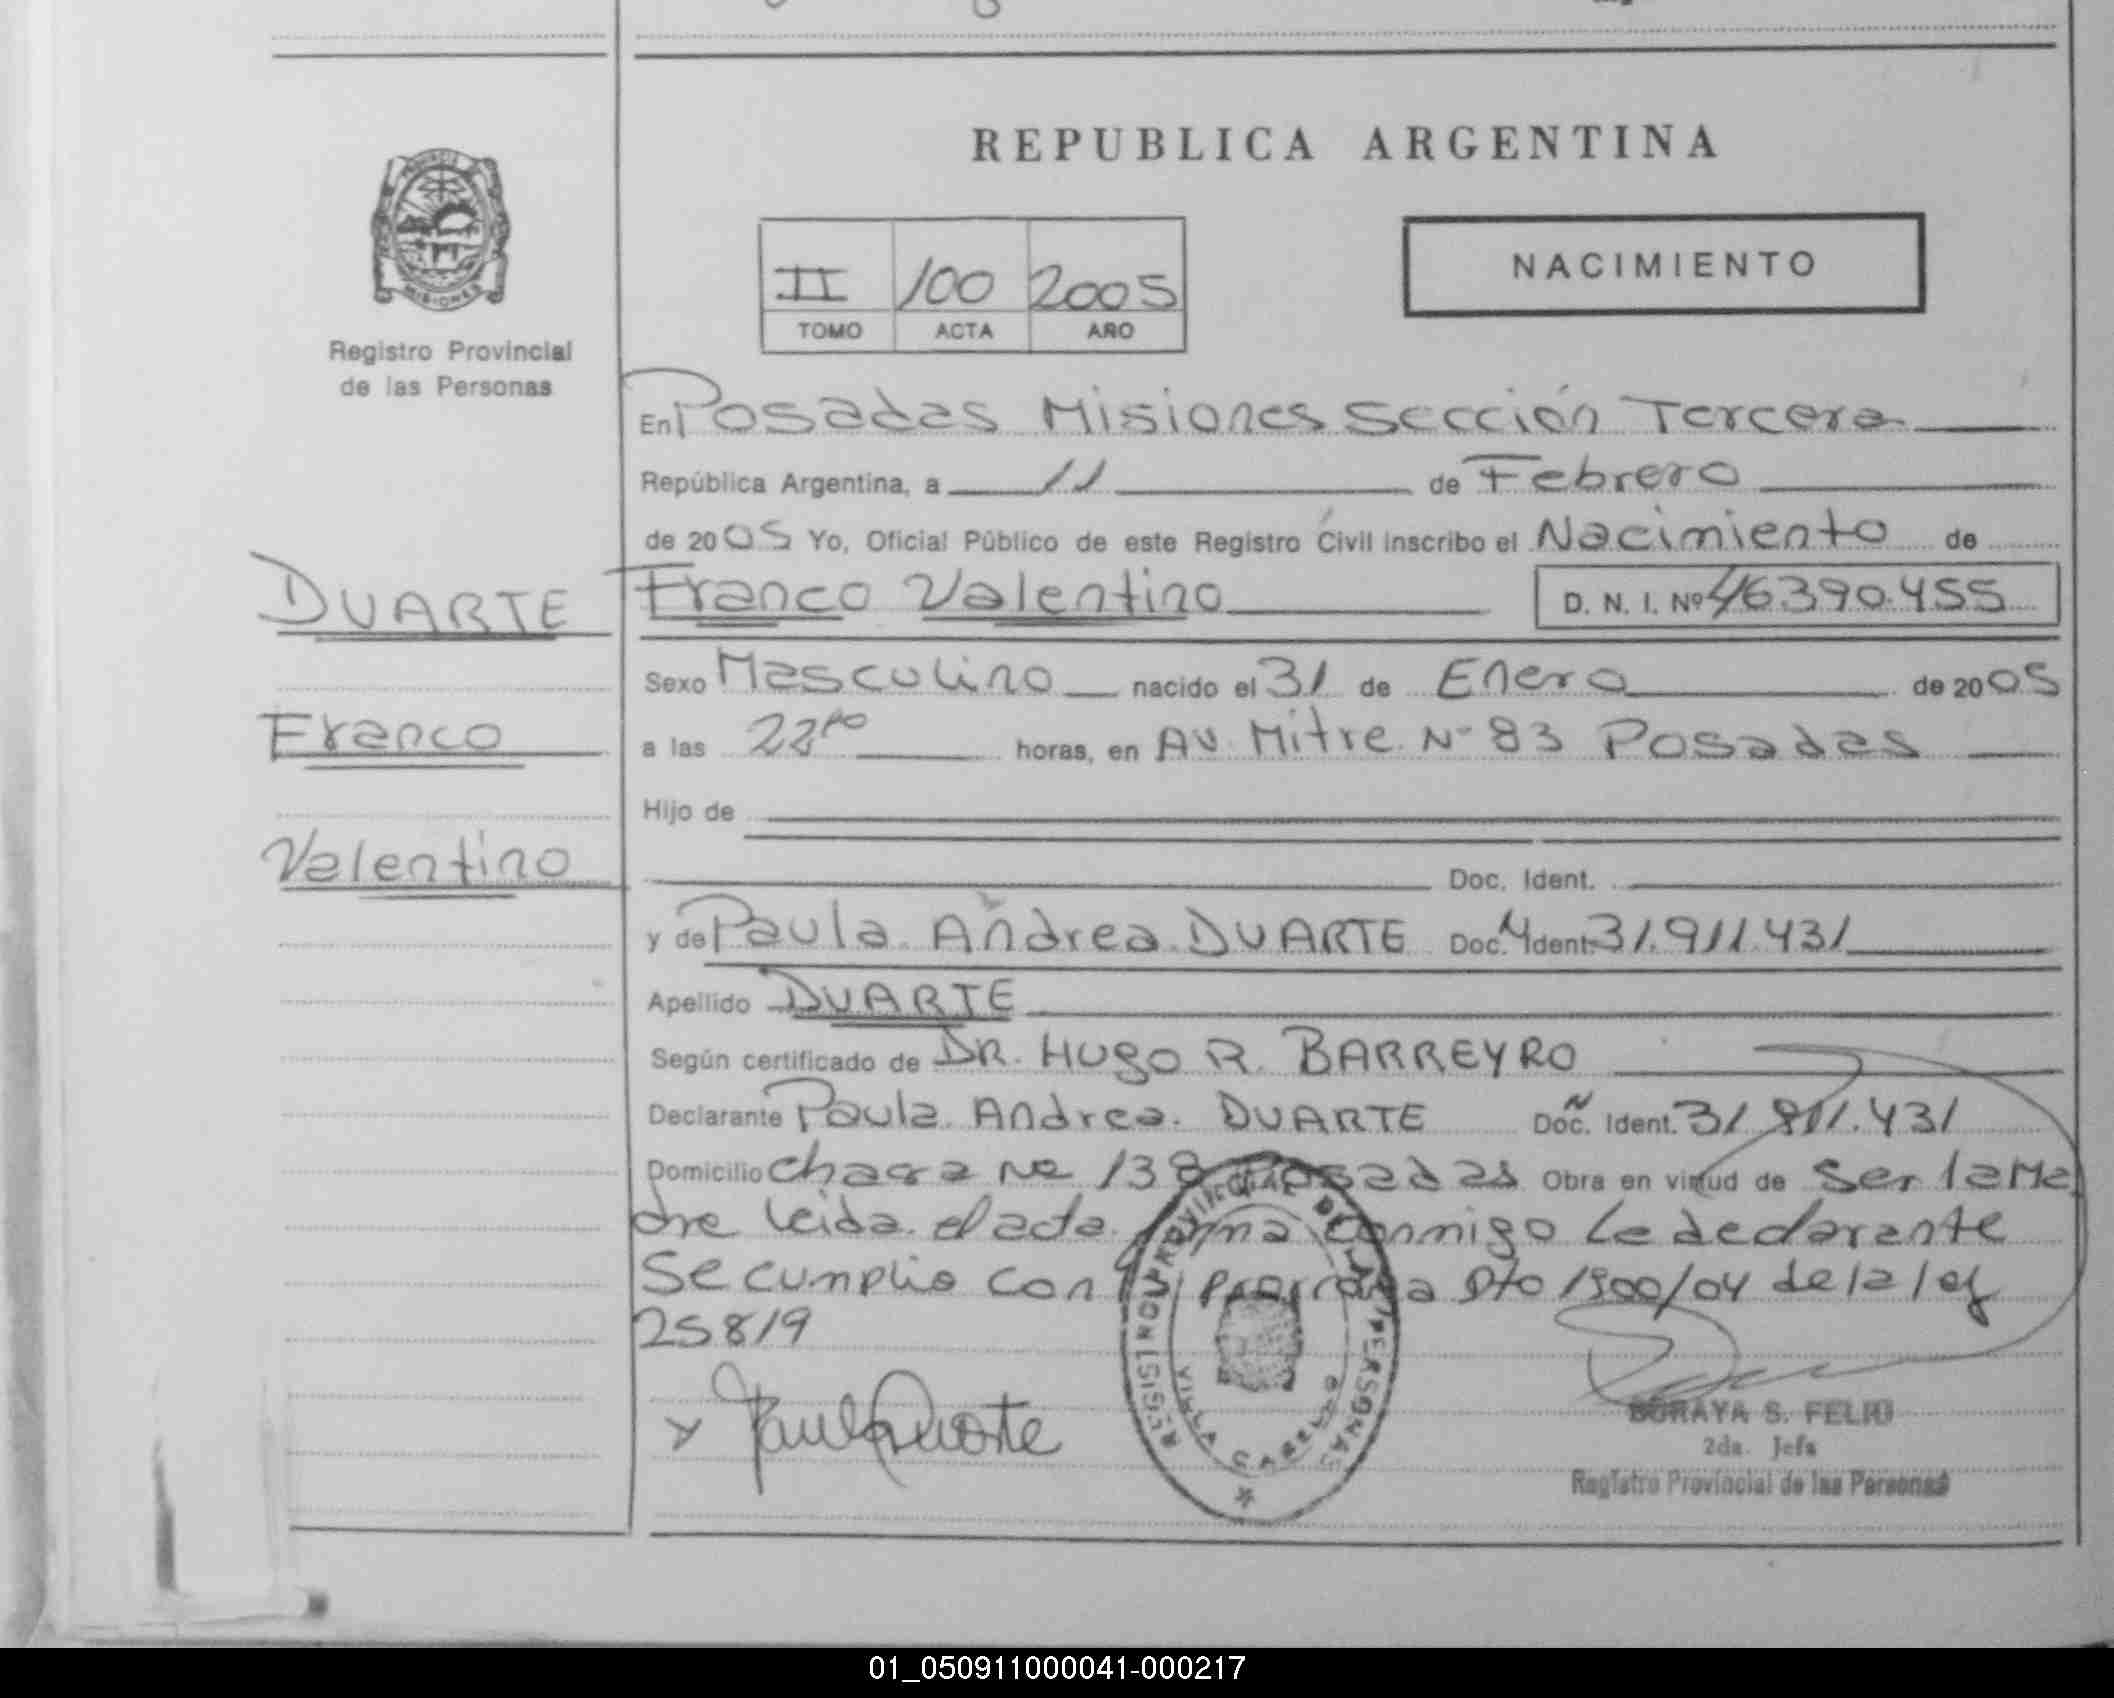 REPUBLICA ARGENTINA
PROVINCIA
MISIONES
Registro Provincial
de las Personas
II 100 2005
TOMO ACTA AÑO
NACIMIENTO
En Posadas Misiones Sección Tercera
República Argentina, a 11 de Febrero
de 2005 Yo, Oficial Público de este Registro Civil inscribo el Nacimiento de
DUARTE
Franco Valentino D. N. I. Nº 46.390.455
Sexo Masculino nacido el 31 de Enero de 2005
Franco
a las horas, en AV. Mitre Nº 83 Posadas
Hijo de
Valentino
Doc. Ident.
y de Paula Andrea DUARTE Doc. Ident. 31.911.431
Apellido DUARTE
Según certificado de DR. HUGO R. BARREYRO
Declarante Paula Andrea DUARTE Doc. Ident. 31.911.431
Domicilio Posadas Obra en virtud de ser la Ma
dre leida el acta firma conmigo la declarante
Se cumplio con programa Dto 1900/04 de la ley
25819
Paula Duarte
REGISTRO PROVINCIAL DE LAS PERSONAS
VILLA CABELLO
SORAYA S. FELIU
2da. Jefa
Registro Provincial de las Personas
01_050911000041-000217